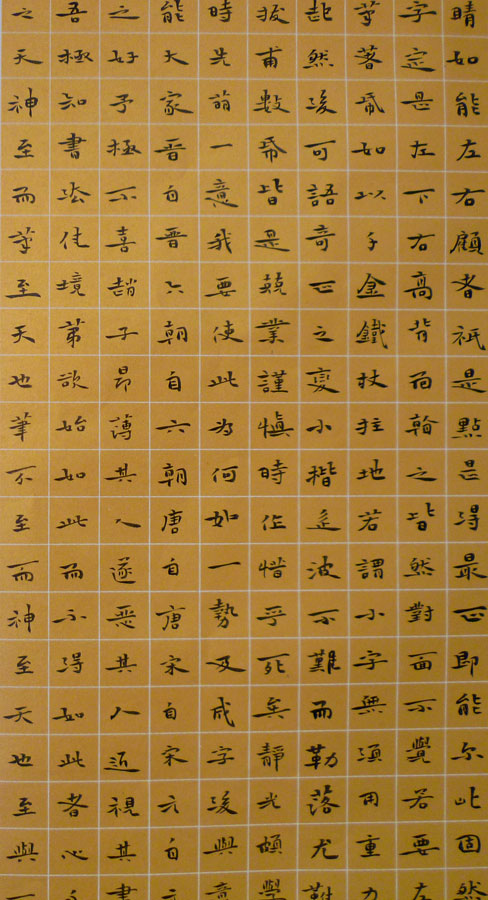 睛如能左右顧者祇是點是得最正即能尔此固然
字定是左下右高背而翰之皆然對面不覺若要左
筆著帋如以千金鐵杖拄地若謂小字無須用重力
起然後可語奇正之變小楷波不難而勒落尤難
拔甫數帋皆是兢業謹慎時作惜乎死矣靜光頗學
時先萌一意我要使此為何如一勢及成字後與意
能大家晋自晋六朝自六朝唐自唐宋自宋元自元
之好予極不喜趙子昂薄其人遂惡其人近視其書
吾極知書法佳境第欲始如此而不得如此者心手
之天神至而筆至天也筆不至而神至天也至與